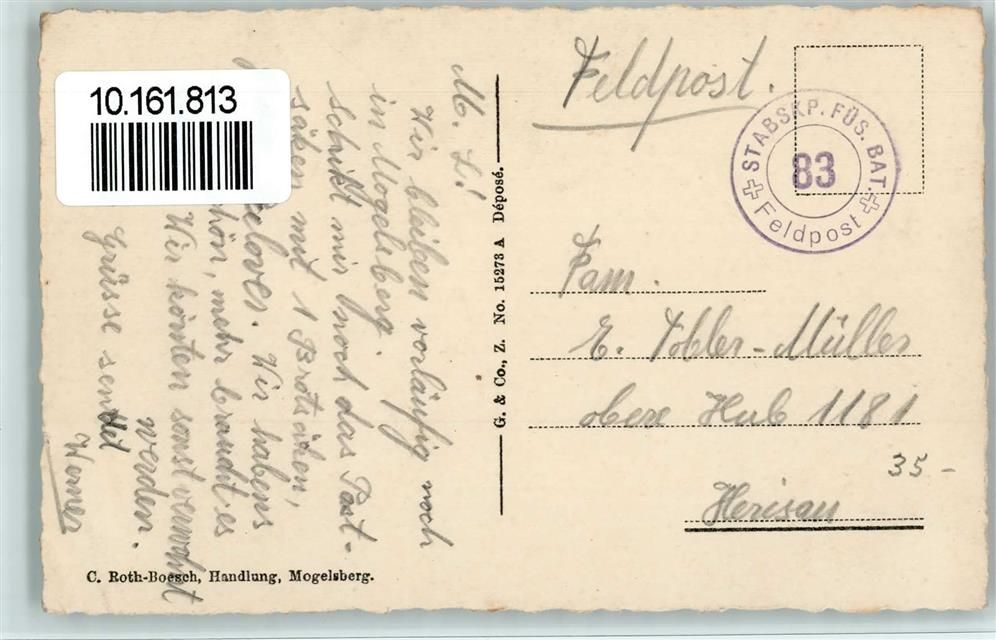 10.161.813
Feldpost.
STABSKP. FÜS. BAT.
83
Feldpost
M. L!
Wir bleiben vorläufig noch
in Mogelsberg.
schikt mir noch das Post-
säken mit 1 Brotschen,
Pulover. Wir habens
schön, mehr braucht es
Wir könten sonst verwöhnt
werden.
Grüsse sendet
Werner
G. & Co., Z. No. 15273 A Déposé.
Fam.
E. Tobler-Müller
obere Hub 1181
Herisau
35 -
C. Roth-Boesch, Handlung, Mogelsberg.